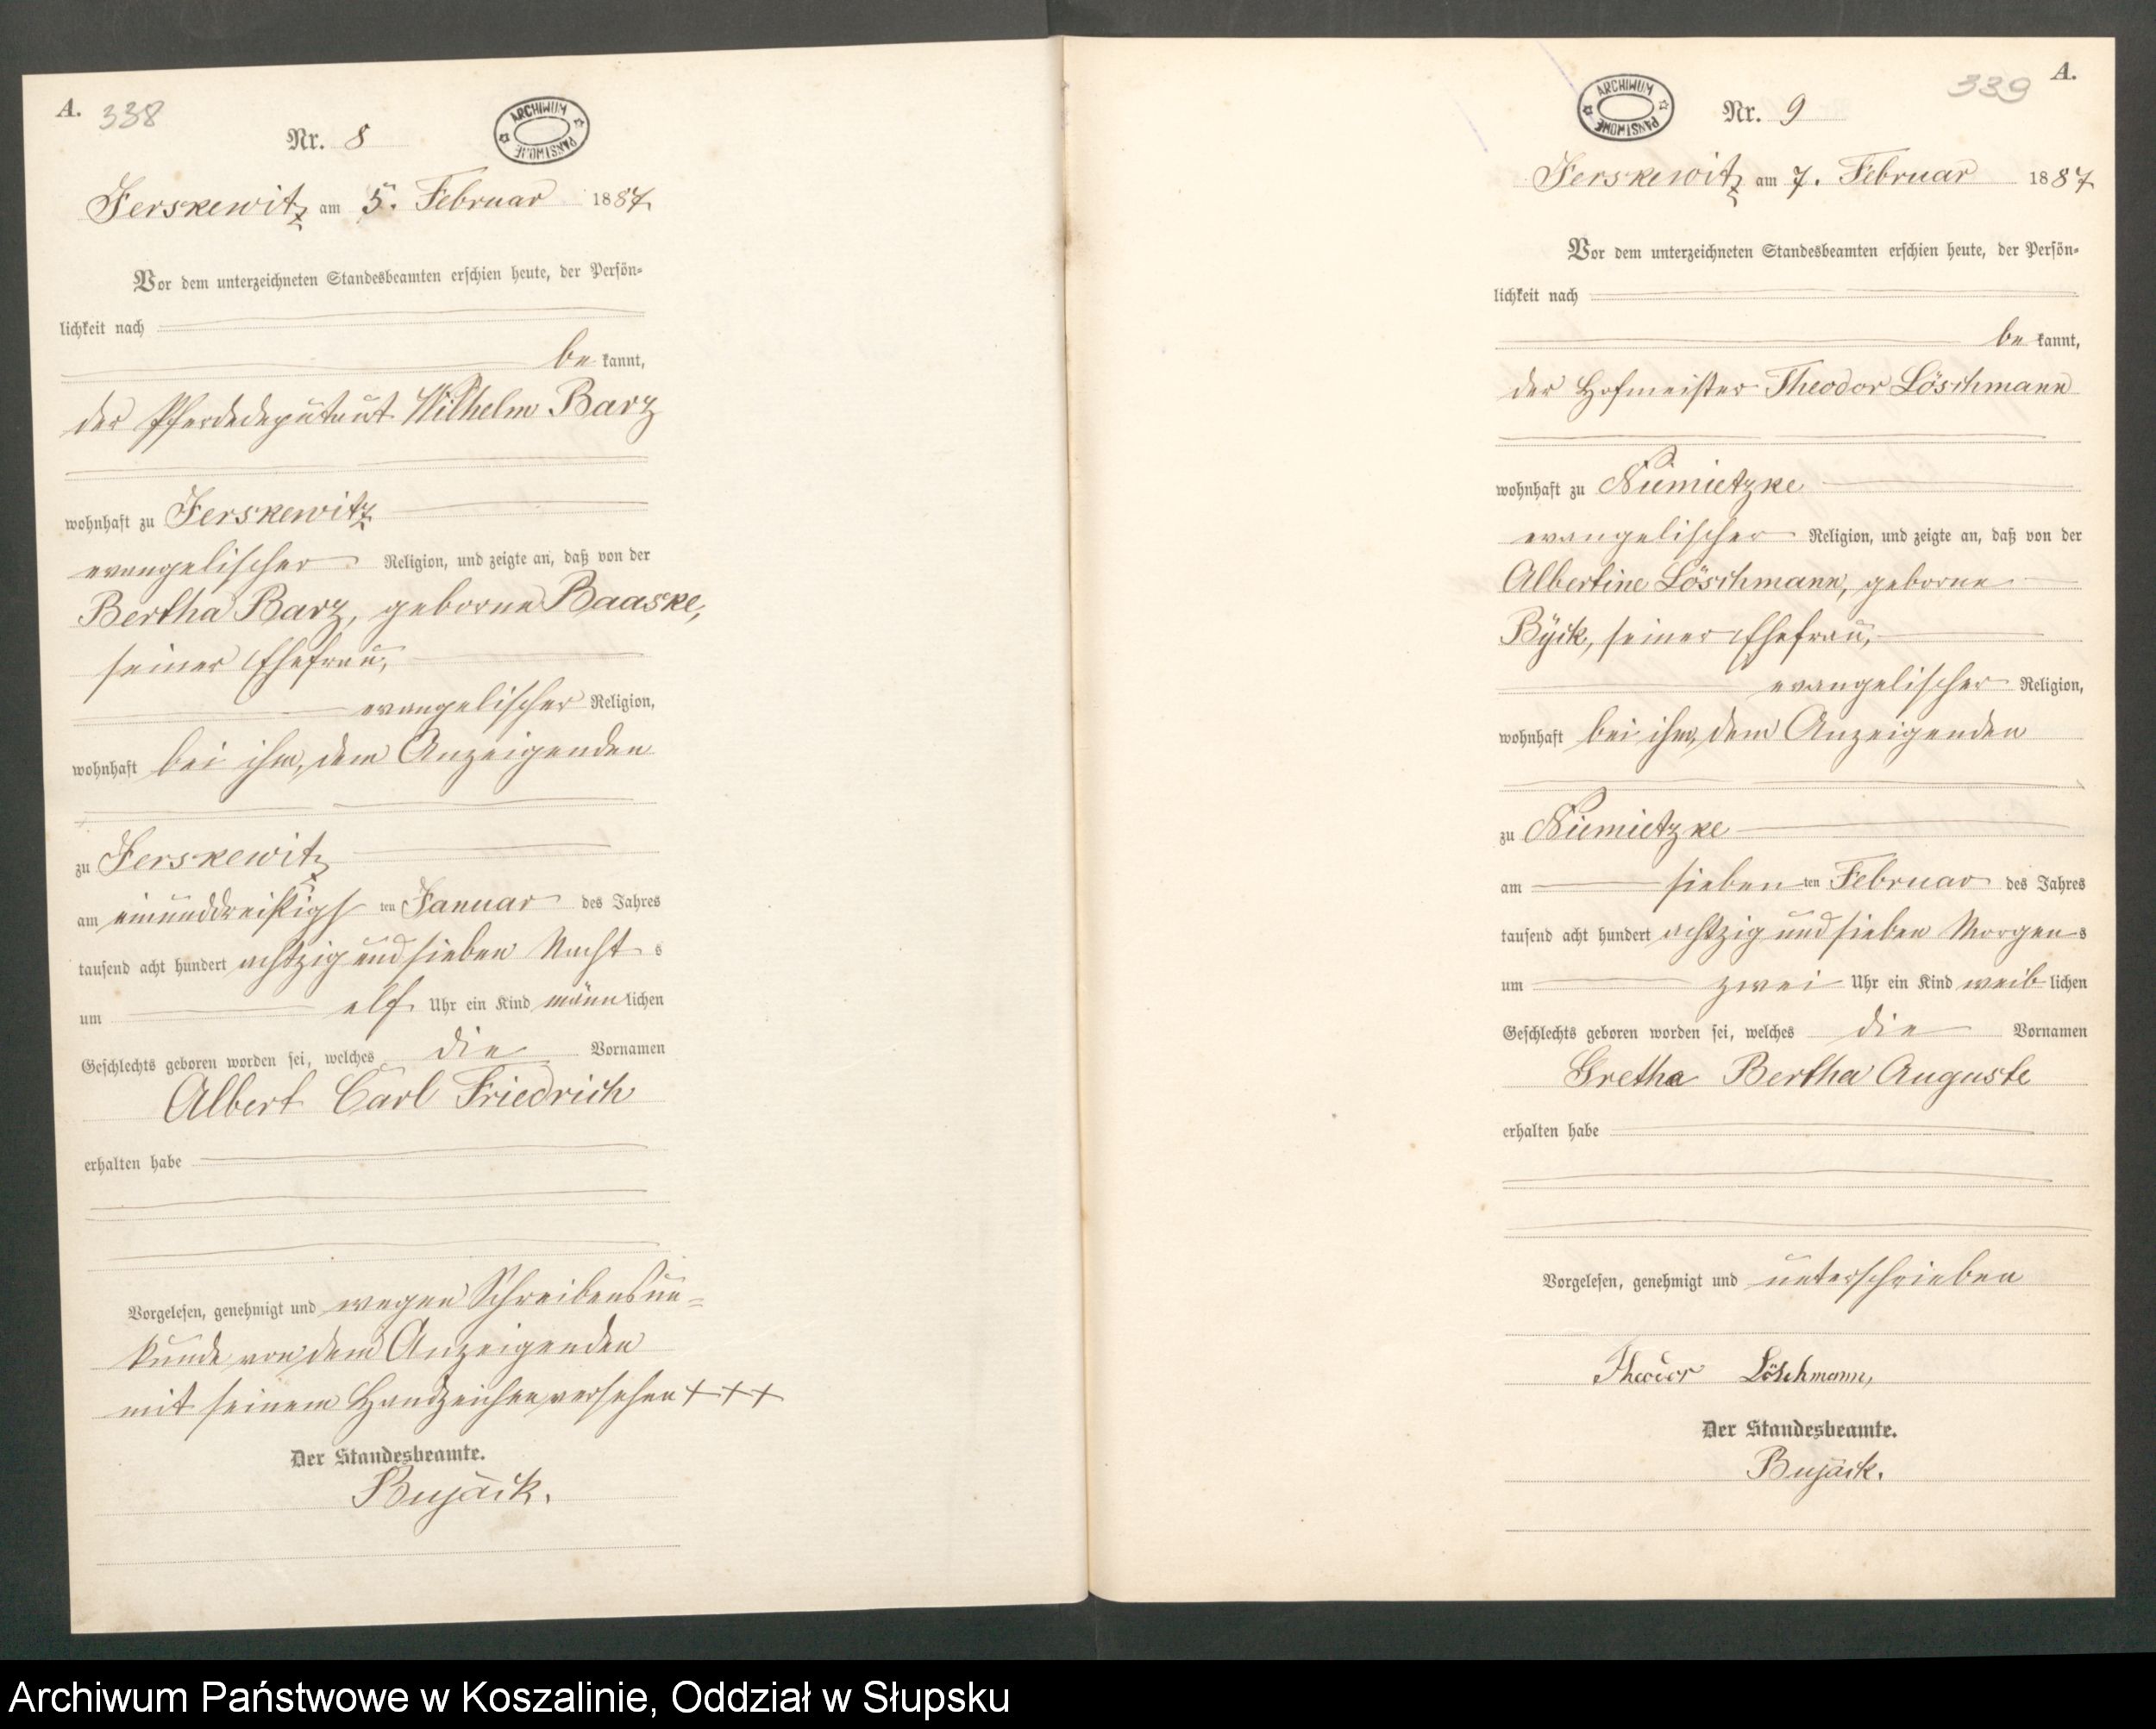 A. 338
ARCHIWUM PAŃSTWOWE
Nr. 8
Jerskewitz am 5. Februar 1887
Vor dem unterzeichneten Standesbeamten erschien heute, der Persön-
lichkeit nach
be kannt,
der Pferdedeputant Wilhelm Barz
wohnhaft zu Jerskewitz
evangelischer Religion, und zeigte an, daß von der
Bertha Barz, geborne Baaske,
seiner Ehefrau,
evangelischer Religion,
wohnhaft bei ihm, dem Anzeigenden
zu Jerskewitz
am einunddreißigsten Januar des Jahres
tausend acht hundert achtzig und sieben Nachts
um elf Uhr ein Kind männlichen
Geschlechts geboren worden sei, welches die Vornamen
Albert Carl Friedrich
erhalten habe
Vorgelesen, genehmigt und wegen Schreibensun=
kunde von dem Anzeigenden
mit seinem Handzeichen versehen +++
Der Standesbeamte.
Bujack.
339 A.
ARCHIWUM PAŃSTWOWE
Nr. 9
Jerskewitz am 7. Februar 1887
Vor dem unterzeichneten Standesbeamten erschien heute, der Persön-
lichkeit nach
be kannt,
der Hofmeister Theodor Löschmann
wohnhaft zu Niemietzke
evangelischer Religion, und zeigte an, daß von der
Albertine Löschmann, geborne
Byck, seiner Ehefrau,
evangelischer Religion,
wohnhaft bei ihm, dem Anzeigenden
zu Niemietzke
am siebenten Februar des Jahres
tausend acht hundert achtzig und sieben Morgens
um zwei Uhr ein Kind weiblichen
Geschlechts geboren worden sei, welches die Vornamen
Gretha Bertha Auguste
erhalten habe
Vorgelesen, genehmigt und unterschrieben
Theodor Löschmann,
Der Standesbeamte.
Bujack.
Archiwum Państwowe w Koszalinie, Oddział w Słupsku